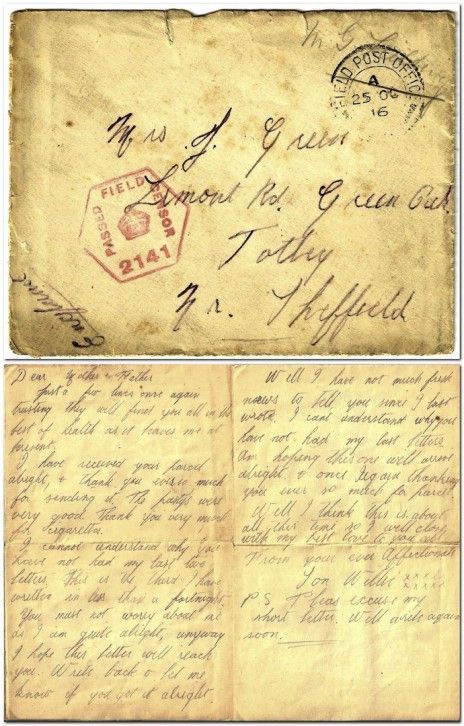 FIELD POST OFFICE
A
25 OC
16
Mrs J. Green
Limont Rd. Green Oak
Totley
Nr. Sheffield
England
PASSED FIELD CENSOR
2141
Dear Mother & Father
Just a few lines once again
trusting they will find you all in the
best of health as it leaves me at
present.
I have received your parcel
alright, & thank you very much
for sending it. The pastys were
very good. Thank you very much
for cigarettes.
I cannot understand why you
have not had my last two
letters. This is the third I have
written in less than a fortnight.
You must not worry about me
as I am quite alright, anyway
I hope this letter will reach
you. Write back & let me
know if you get it alright.
Well I have not much fresh
news to tell you since I last
wrote. I cant understand why you
have not had my last letters.
Am hoping this one will arrive
alright. & once again thanking
you ever so much for parcel.
Well I think this is about
all this time so I will close
with my best love to you all
From your ever Affectionate
Son Willie xxxx
xxxx
P.S. Pleas excuse my
short letter. Will write again
soon.